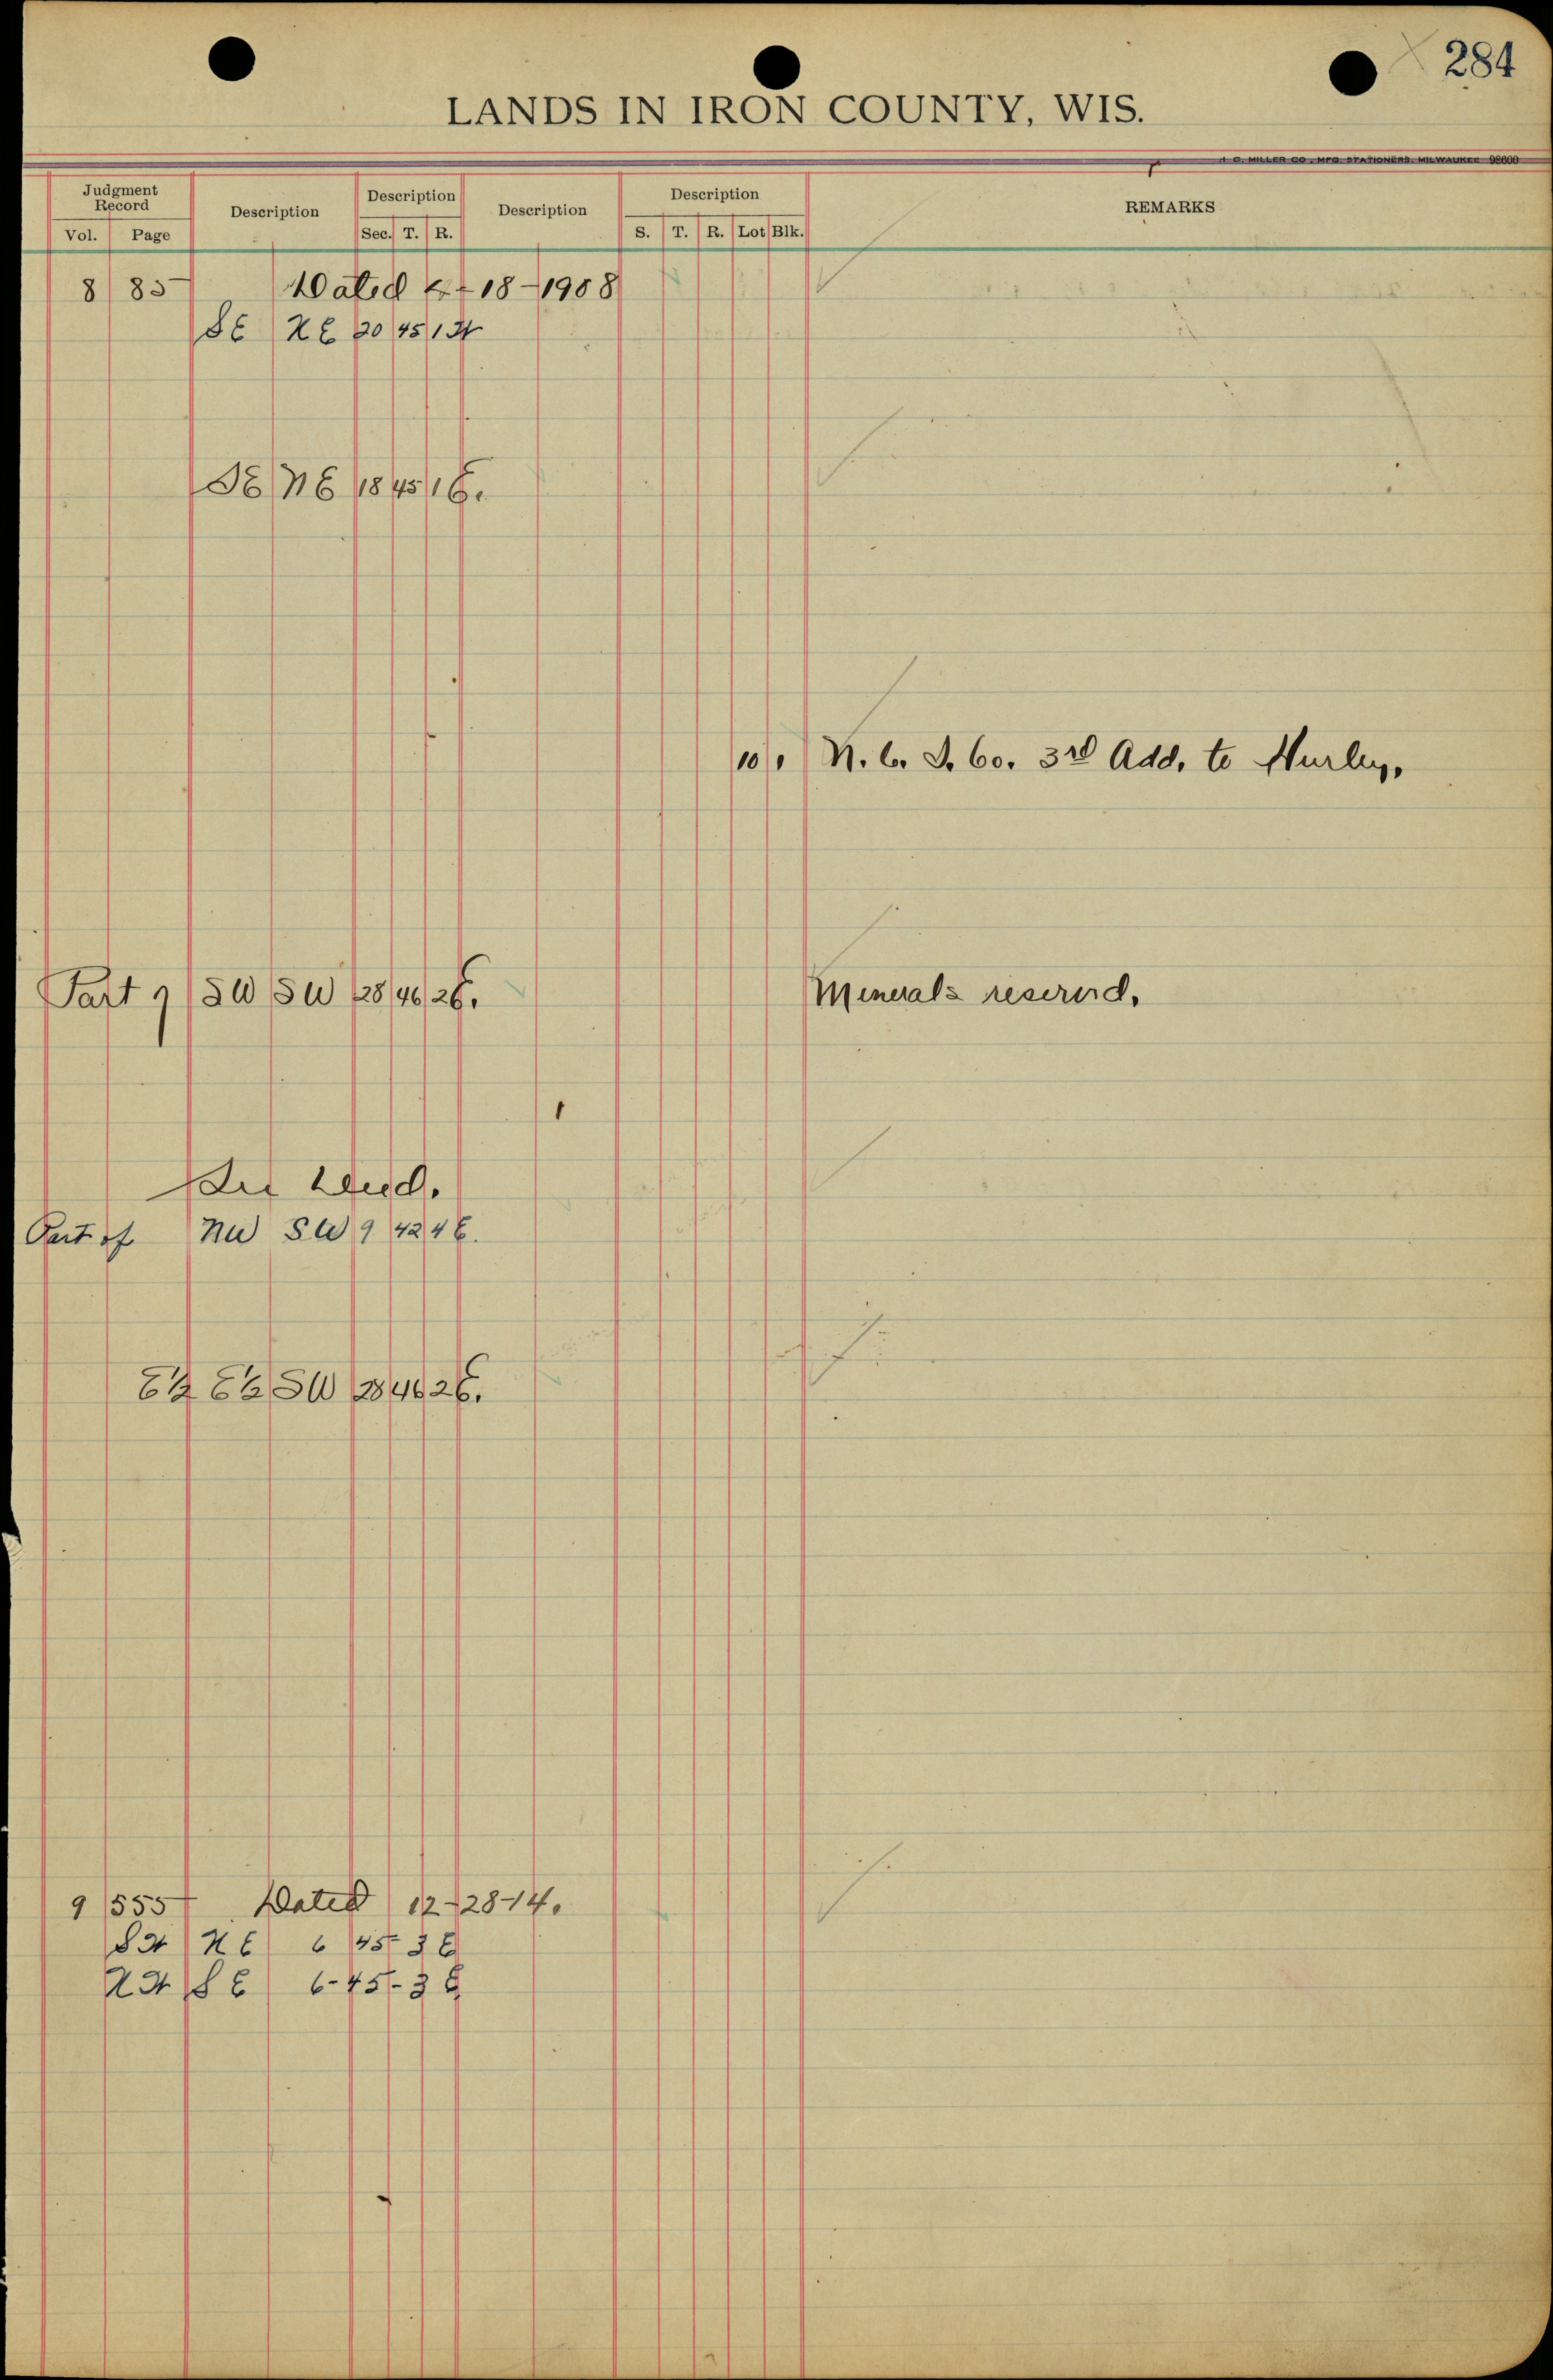 284
LANDS IN IRON COUNTY, WIS.
H. C. MILLER CO. MFG. STATIONERS, MILWAUKEE 98600
Judgment Record Description Description Description Description REMARKS
Vol. Page Sec. T. R. S. T. R. Lot Blk.
8 85 Dated 4-18-1908
SE NE 20 45 1 W
SE NE 18 45 1 E.
10 1 N. C. I. Co. 3rd Add. to Hurley.
Part of SW SW 28 46 2 E. Minerals reserved.
See Deed.
Part of NW SW 9 42 4 E.
E½ E½ SW 28 46 2 E.
9 555 Dated 12-28-14.
SW NE 6 45 3 E
NW SE 6-45-3 E